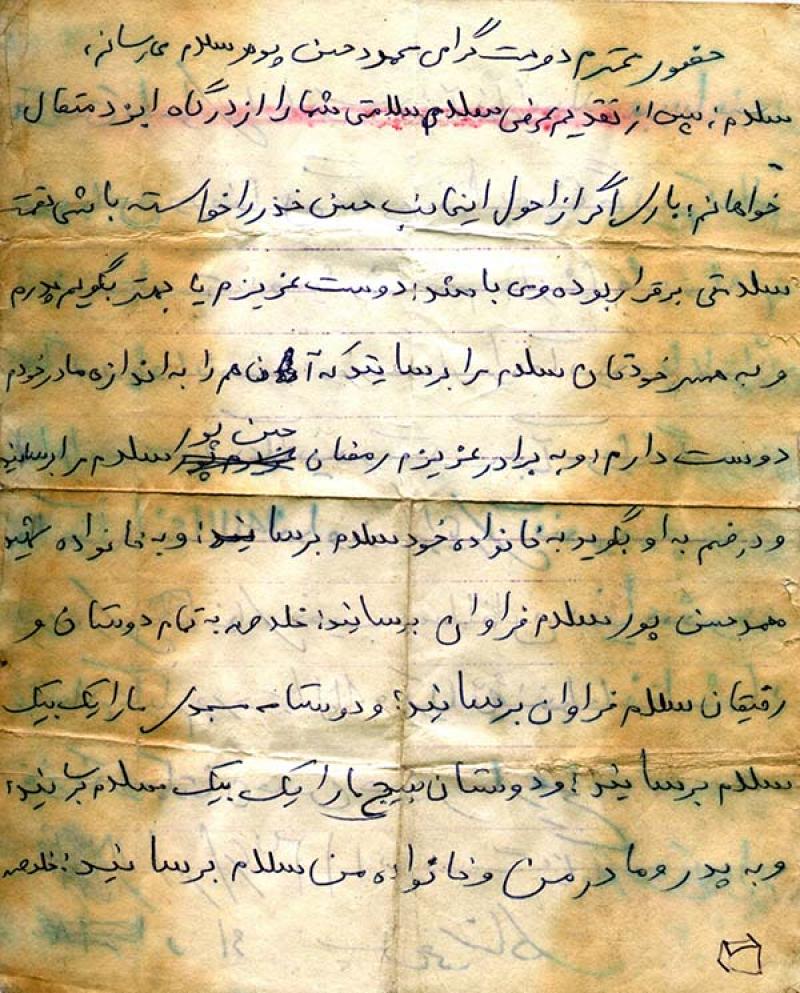 حضور محترم دوست گرامی محمود حسن پور سلام می رسانم،
سلام؛ پس از تقدیم عرض سلام سلامتی شما را از درگاه ایزد متعال
خواهانم؛ باری اگر از احول اینجانب حسن خذر را خواسته باشی نعمت
سلامتی برقرار بوده و می باشد؛ دوست عزیزم یا بهتر بگویم پدرم
و به همسر خودتان سلام مرا برسانید که آن هم را به اندازه مادر خودم
دوست دارم؛ و به برادر عزیزم رمضان حسن پور سلام مرا برسانید
و در ضم به او بگوید به خانواده خود سلام برسانید؛ و به خانواده شهید
محمد حسن پور سلام فراوان برسانید؛ خلاصه به تمام دوستان و
رفیقان سلام فراوان برسانید؛ و دوستان مسجدی ما را یک بیک
سلام برسانید؛ و دوستان بسیج ما را یک بیک سلام برسانید؛
و به پدر و مادر من و خانواده من سلام برسانید؛ خلاصه